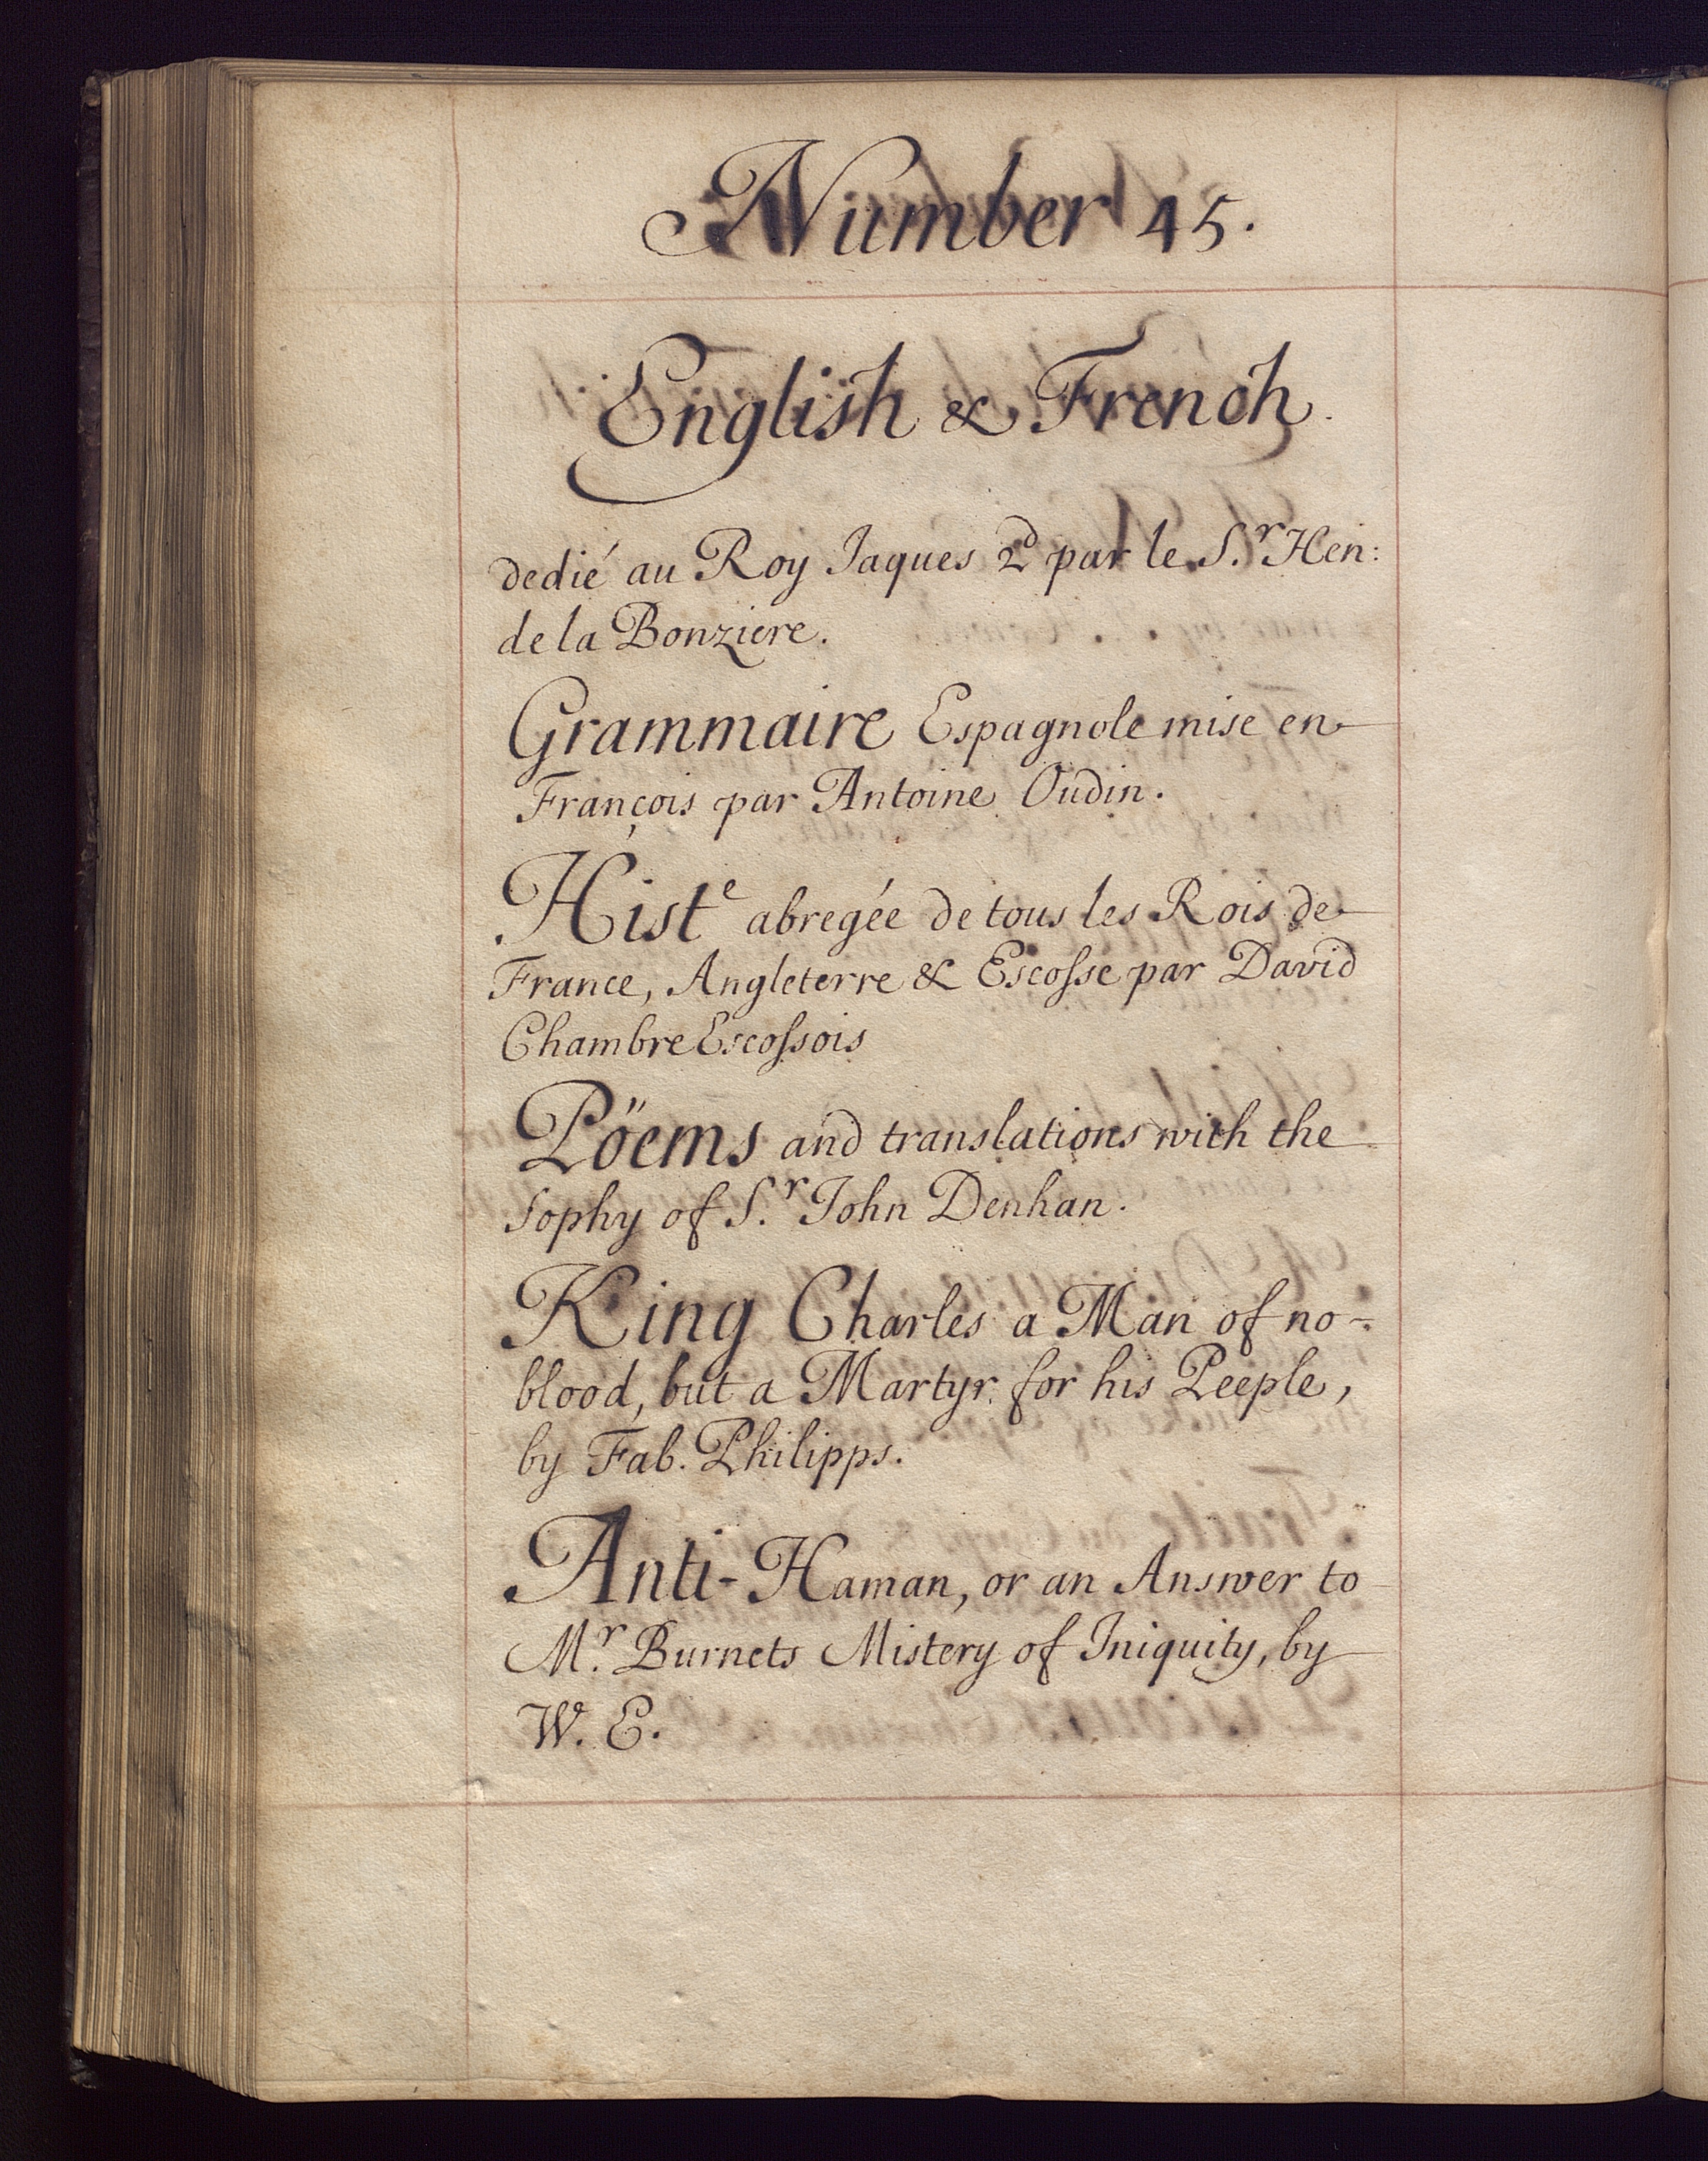 Number 45.
English & French.
dedié au Roy Jaques 2d par le S.r Hen:
de la Bonziere.
Grammaire Espagnole mise en
François par Antoine Oudin.
Histe abregée de tous les Rois de
France, Angleterre & Escosse par David
Chambre Escossois
Pöems and translations with the
Sophy of S.r John Denhan.
King Charles a Man of no-
blood, but a Martyr for his Peeple,
by Fab. Philipps.
Anti-Haman, or an Answer to
M.r Burnets Mistery of Iniquity, by
W. E.